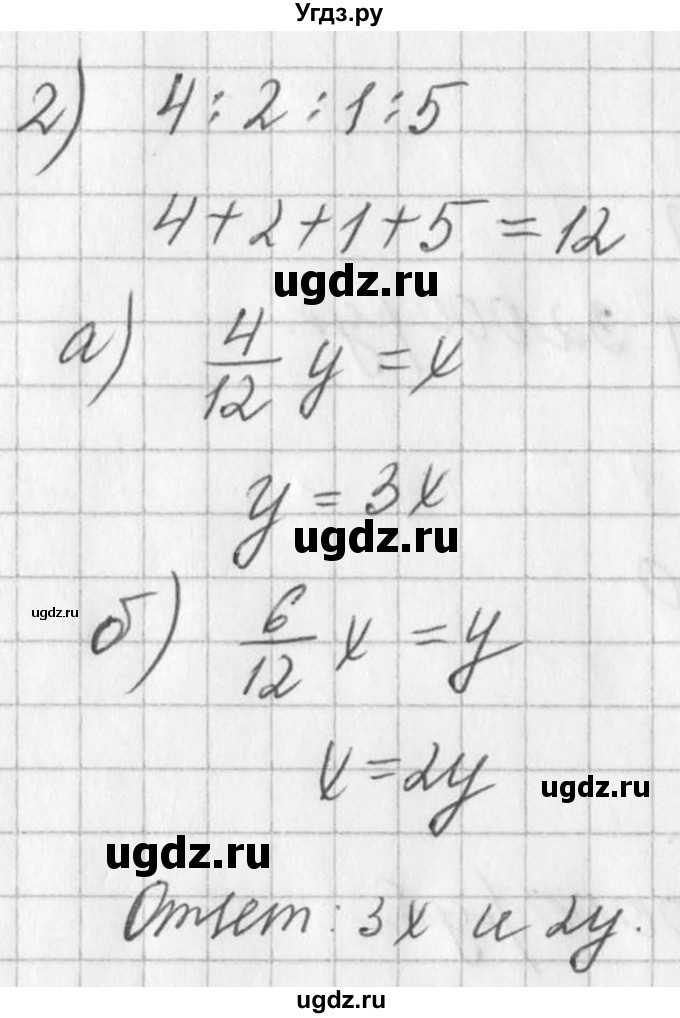 Угдз.ру
2) 4:2:1:5
4+2+1+5=12
ugdz.ru
а) 4/12 y = x
y = 3x
ugdz.ru
ugdz.ru
б) 6/12 x = y
x = 2y
ugdz.ru
ugdz.ru
Ответ: 3x и 2y.
ugdz.ru